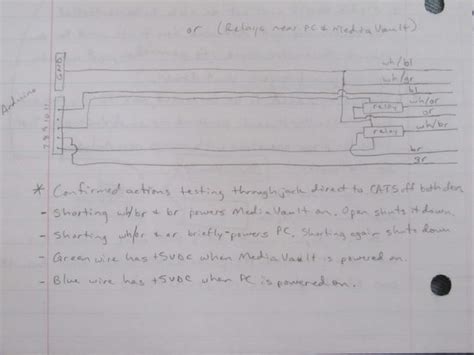 or (Relays near PC & MediaVault)
GND
wh/bl
wh/gr
bl
wh/or
relay
or
Arduino
wh/br
relay
7 8 9 10 11
br
gr
* Confirmed actions testing through jack direct to CAT5 off both devs.
- Shorting wh/br & br powers MediaVault on. Open shuts it down.
- Shorting wh/or & or briefly powers PC. Shorting again shuts down
- Green wire has +5VDC when MediaVault is powered on.
- Blue wire has +5VDC when PC is powered on.